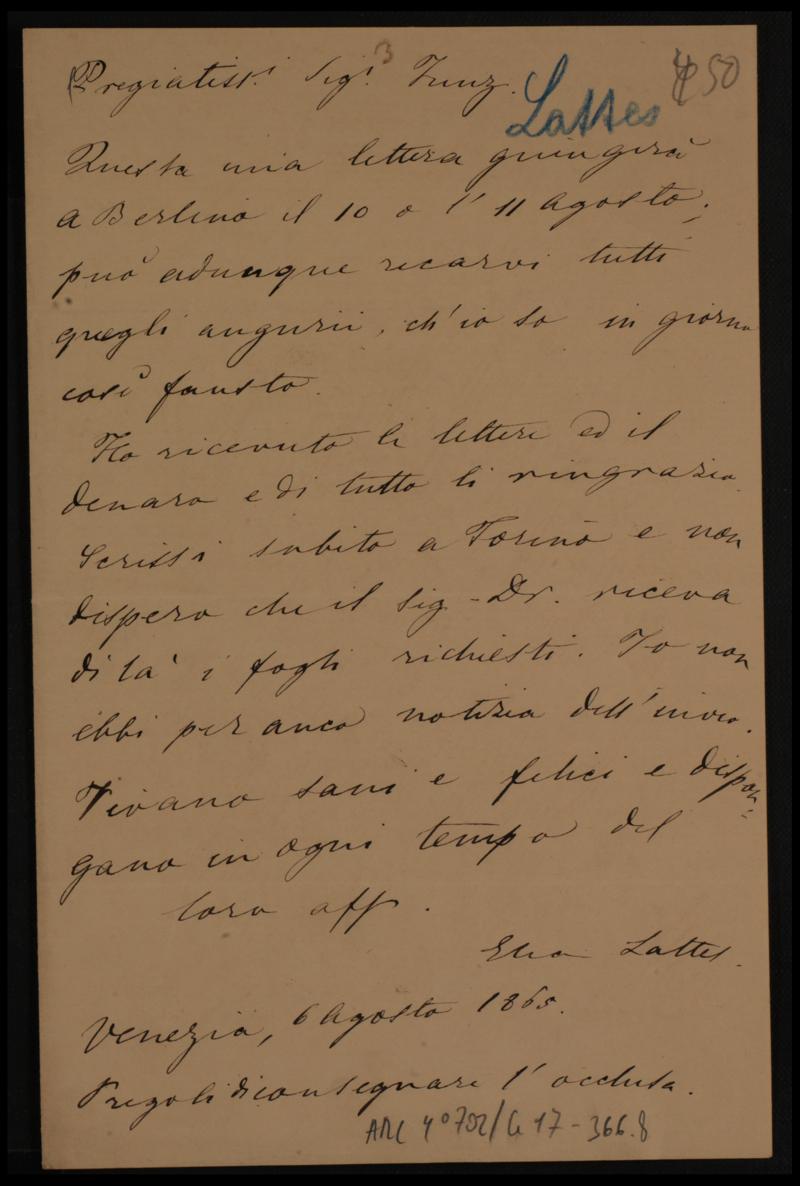 Pregiatiss.i Sig.i Zunz.
3
Lattes
50
Questa mia lettera giungerà
a Berlino il 10 o l' 11 Agosto;
può adunque recarvi tutti
quegli augurii, ch'io so in giorno
così fausto.
Ho ricevuto le lettere ed il
denaro e di tutto li ringrazio.
Scrissi subito a Torino e non
dispero che il sig. Dr. riceva
di là i fogli richiesti. Io non
ebbi per anco notizia dell'invio.
Vivano sani e felici e dispon-
gano in ogni tempo del
loro aff.
Elia Lattes.
Venezia, 6 Agosto 1865.
Pregoli di consegnare l'occlusa.
ARC 4° 792/G 17-366.8